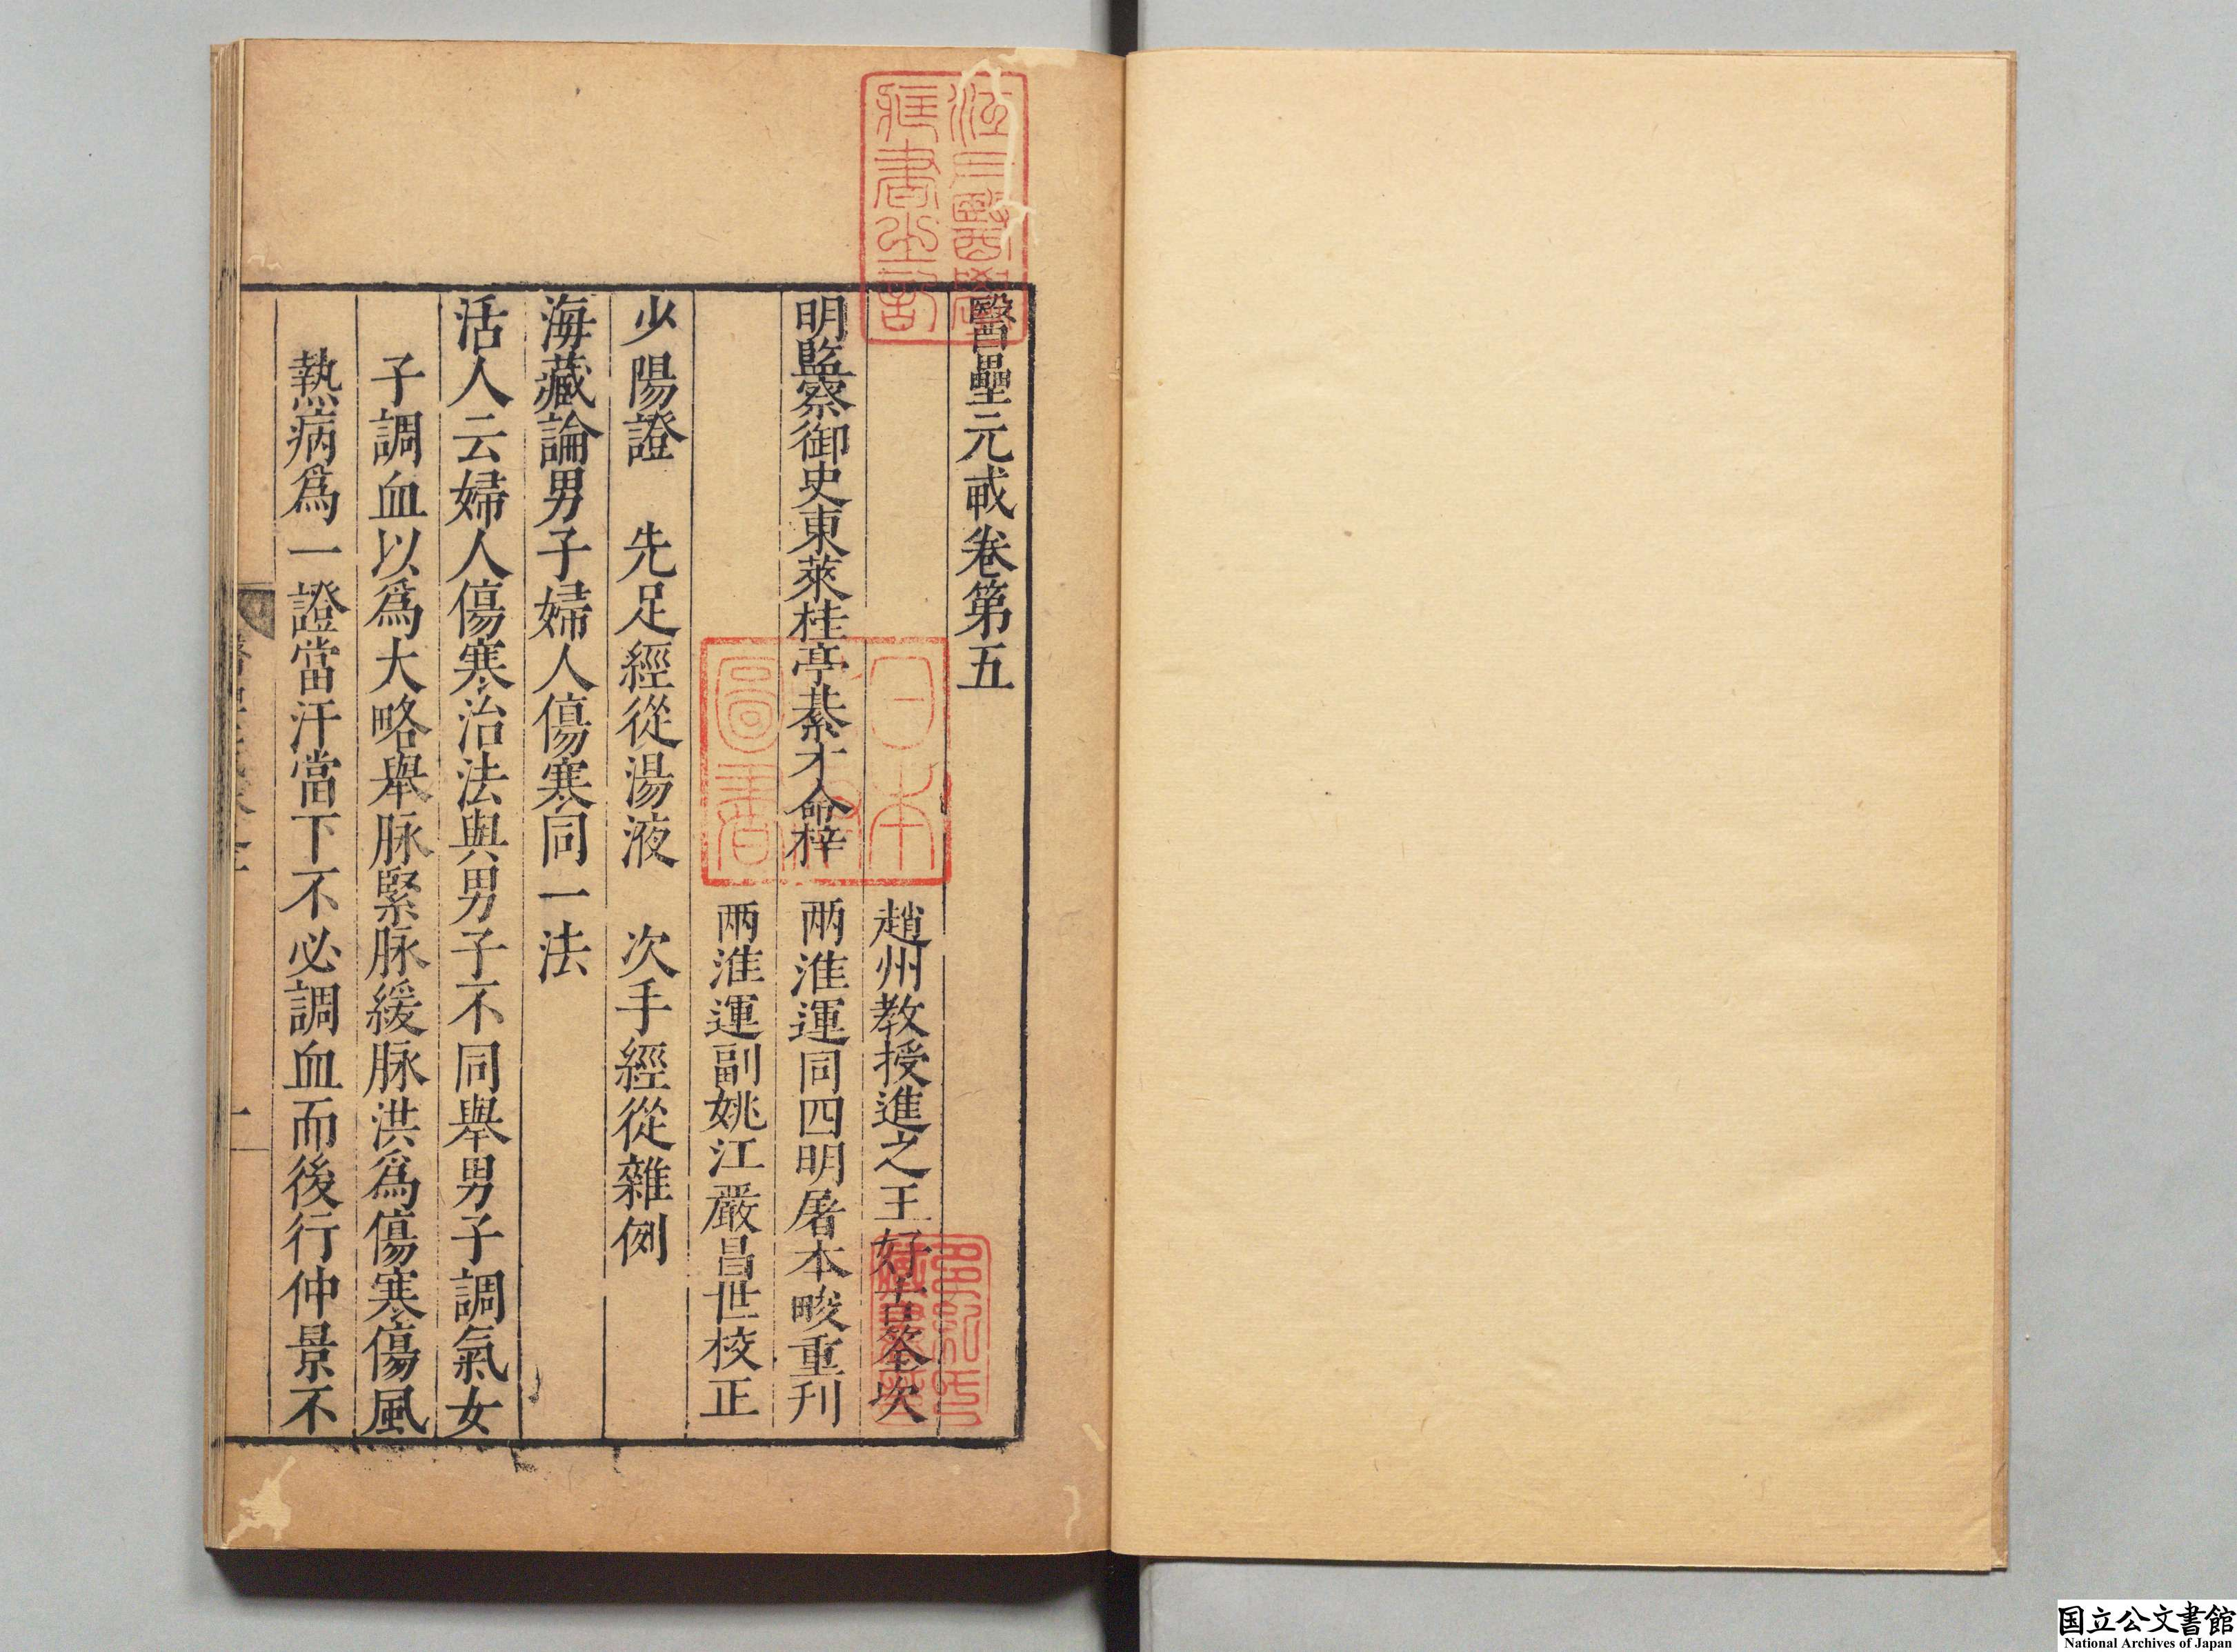 醫壘元戎卷第五
趙州教授進之王好古筌次
明監察御史東萊桂亭綦才命梓
兩淮運同四明屠本畯重刊
兩淮運副姚江嚴昌世校正
少陽證 先足經從湯液 次手經從雜例
海藏論男子婦人傷寒同一法
活人云婦人傷寒治法與男子不同舉男子調氣女
子調血以爲大略舉脉緊脉緩脉洪爲傷寒傷風
熱病爲一證當汗當下不必調血而後行仲景不
躋壽殿書籍記
日本
圖書
国立公文書館
National Archives of Japan